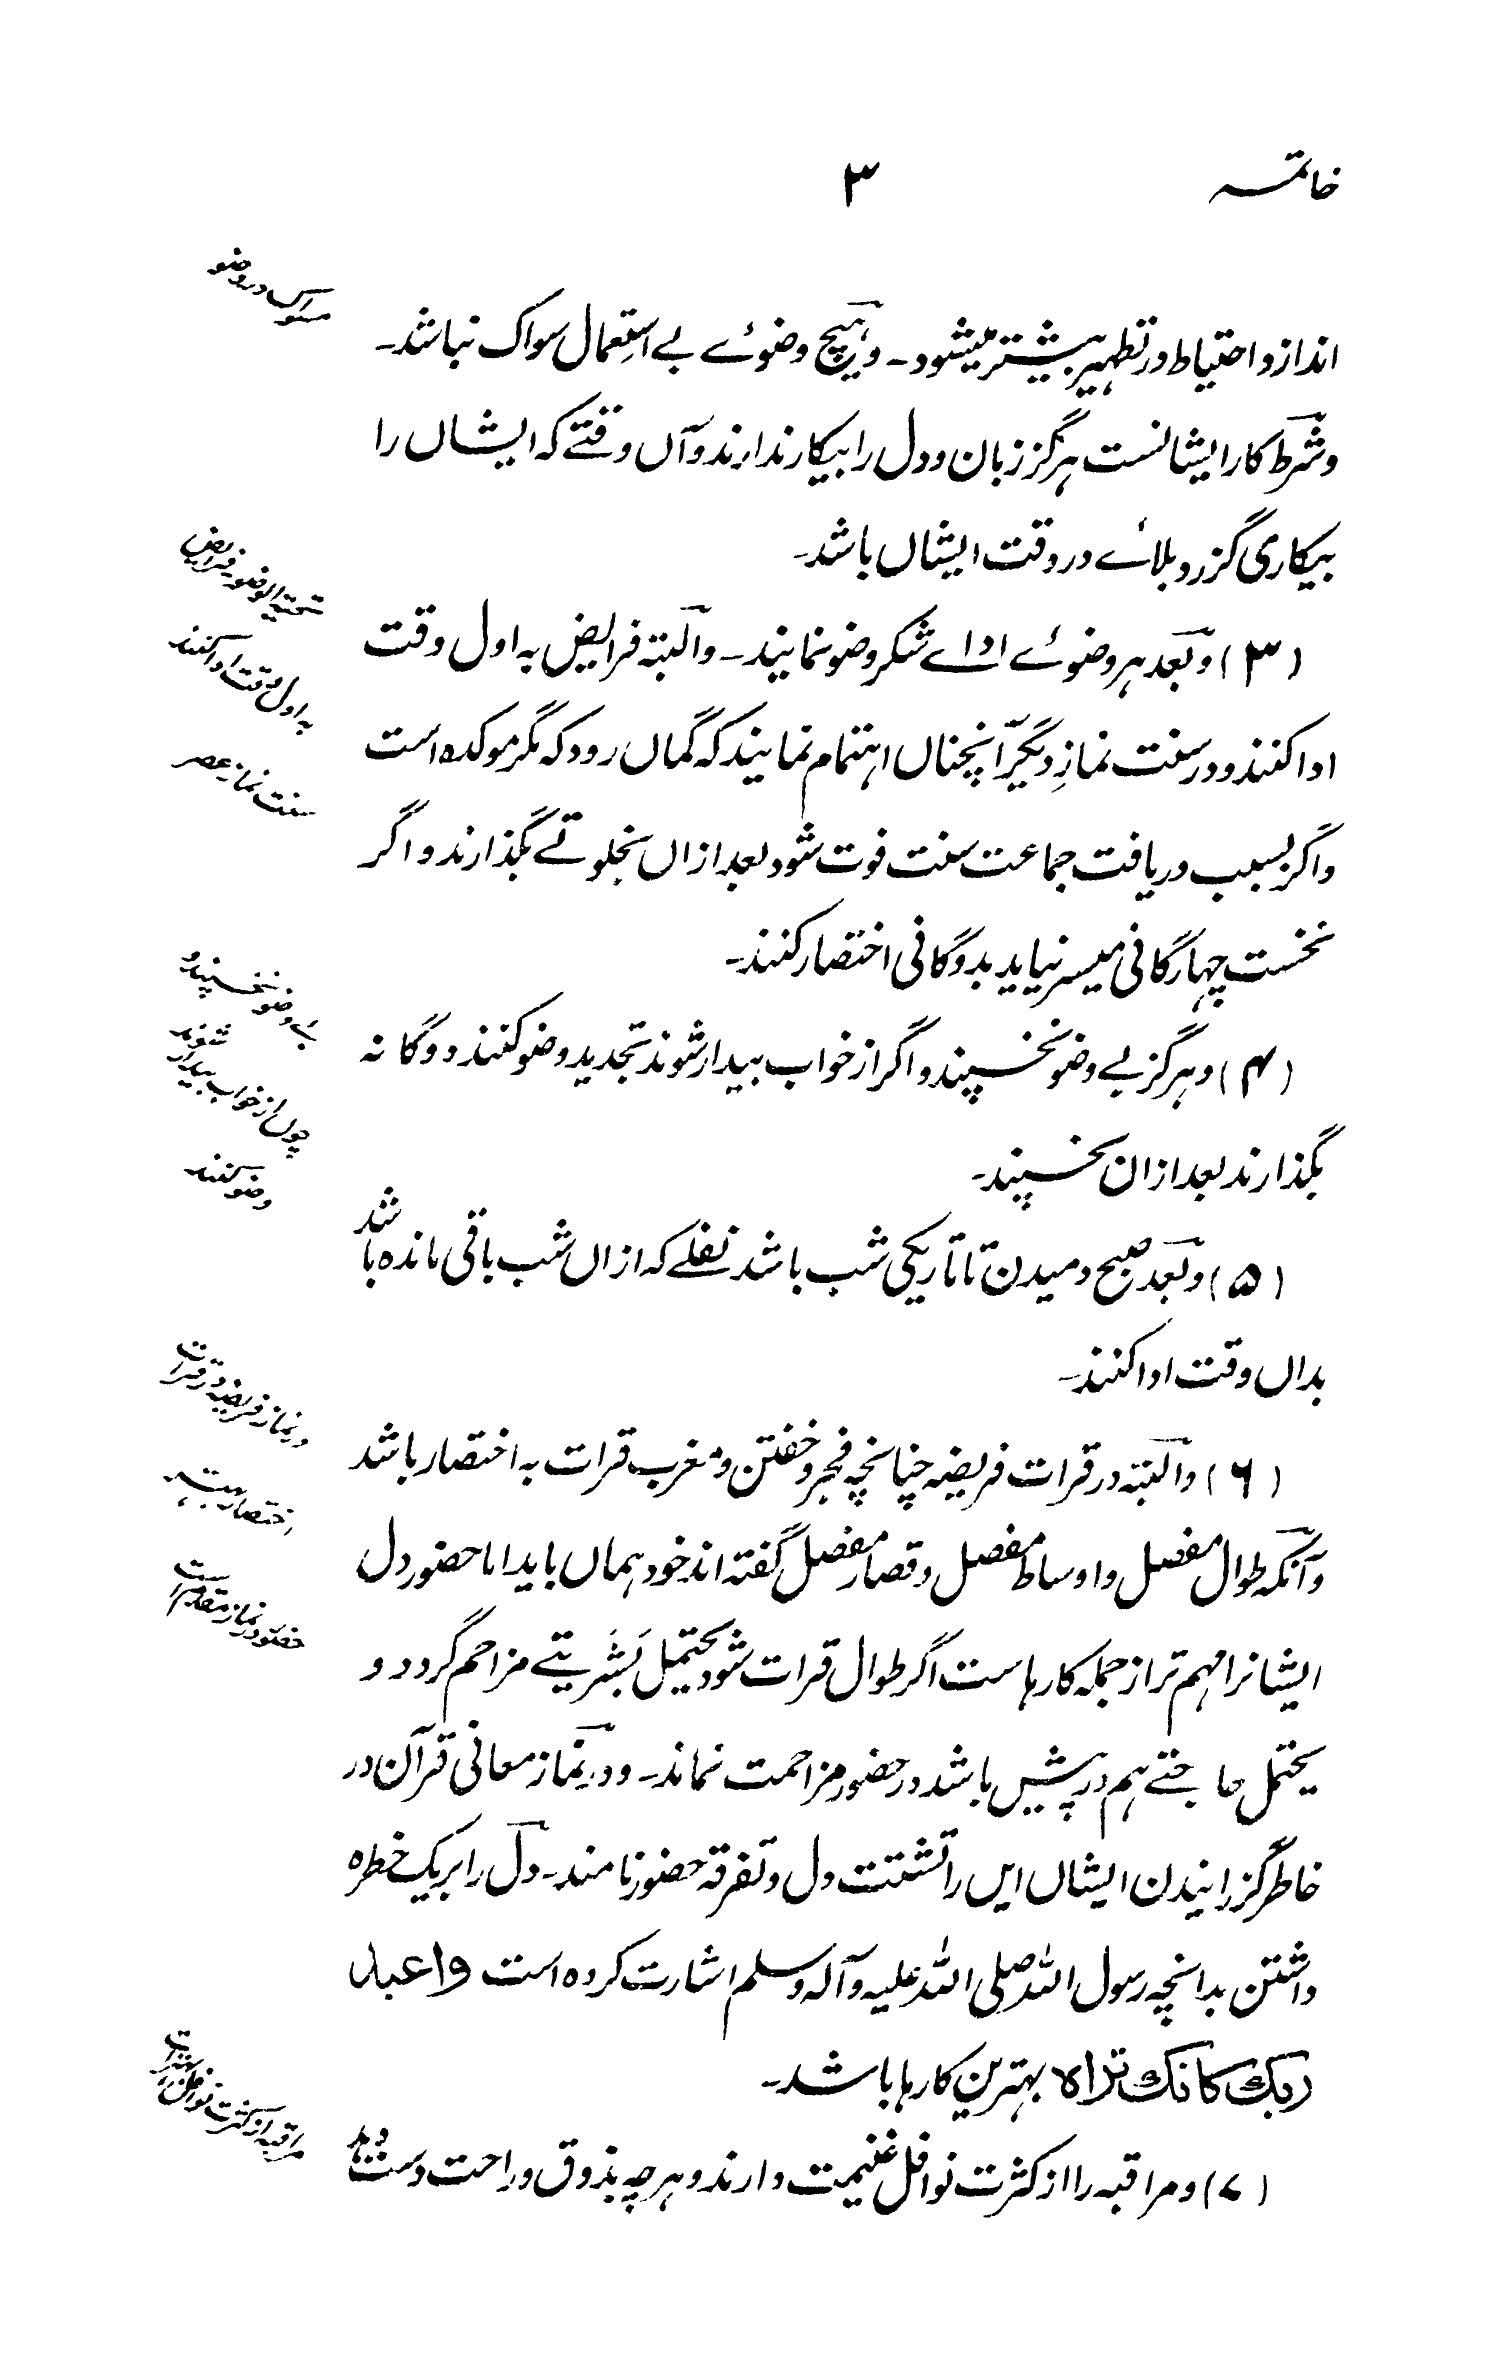 خاتمه ۳
مسواک در وضو
اندازو احتیاط در تطهیر بیشتر میشود۔ و ہیچ وضوئے بے استعمال سواک نباشد۔
و شرط کار ایشانست ہرگز زبان و دل را بیکار ندارند و آں وقتے کہ ایشاں را
بیکاری گزرد بلائے در وقت ایشاں باشد۔
تحیۃ الوضو فرایض
(۳) و بعد ہر وضوئے اداے شکر وضو نمایند۔ و البتہ فرایض بہ اول وقت
بہ اول وقت ادا کنند
ادا کنند و در سنت نمازِ دیگر آنچناں اہتمام نمایند کہ گماں رود کہ مگر موکدہ است
سنت نماز عصر
و اگر بسبب دریافت جماعت سنت فوت شود بعد ازاں بخلوتے بگذارند و اگر
نخست چہارگانی میسر نیاید بدوگانی اختصار کنند۔
بے وضو نخسپند و
(۴) و ہرگز بے وضو نخسپند و اگر از خواب بیدار شوند تجدید وضو کنند دوگانہ
چوں از خواب بیدار شوند
بگذارند بعد ازان بخسپند۔
وضو کنند
(۵) و بعد صبح دمیدن تا تاریکی شب باشد نفلے کہ ازاں شب باقی ماندہ باشد
بداں وقت ادا کنند۔
در نماز فریضہ در قرات
(۶) و البتہ در قرات فریضہ چنانچہ فجر و خفتن و مغرب قرات بہ اختصار باشد
اختصار بہتر
و آنکہ طوال مفصل و اوساط مفصل و قصار مفصل گفتہ اند خود ہماں باید اما حضور دل
حضور در نماز مقدم است
ایشانرا مہم تر از جملہ کارہا ست اگر طوال قرات شود یحتمل بَشَریتے مزاحم گردد و
یحتمل حاجتے ہم در پیش باشد در حضور مزاحمت نماند۔ و در نماز معانی قرآن در
خاطر گزرانیدن ایشاں ایں را تشتت دل و تفرقہ حضور نامند۔ دل را بر یک خطرہ
داشتن بدانچہ رسول اللہ صلی اللہ علیہ و آلہ وسلم اشارت کردہ است واعبد
ربك كانك تراه بہترین کارہا باشد۔
مراقبہ از کثرت نوافل بہتر است
(۷) و مراقبہ را از کثرت نوافل غنیمت دارند و ہرچہ بذوق و راحت دست دہد